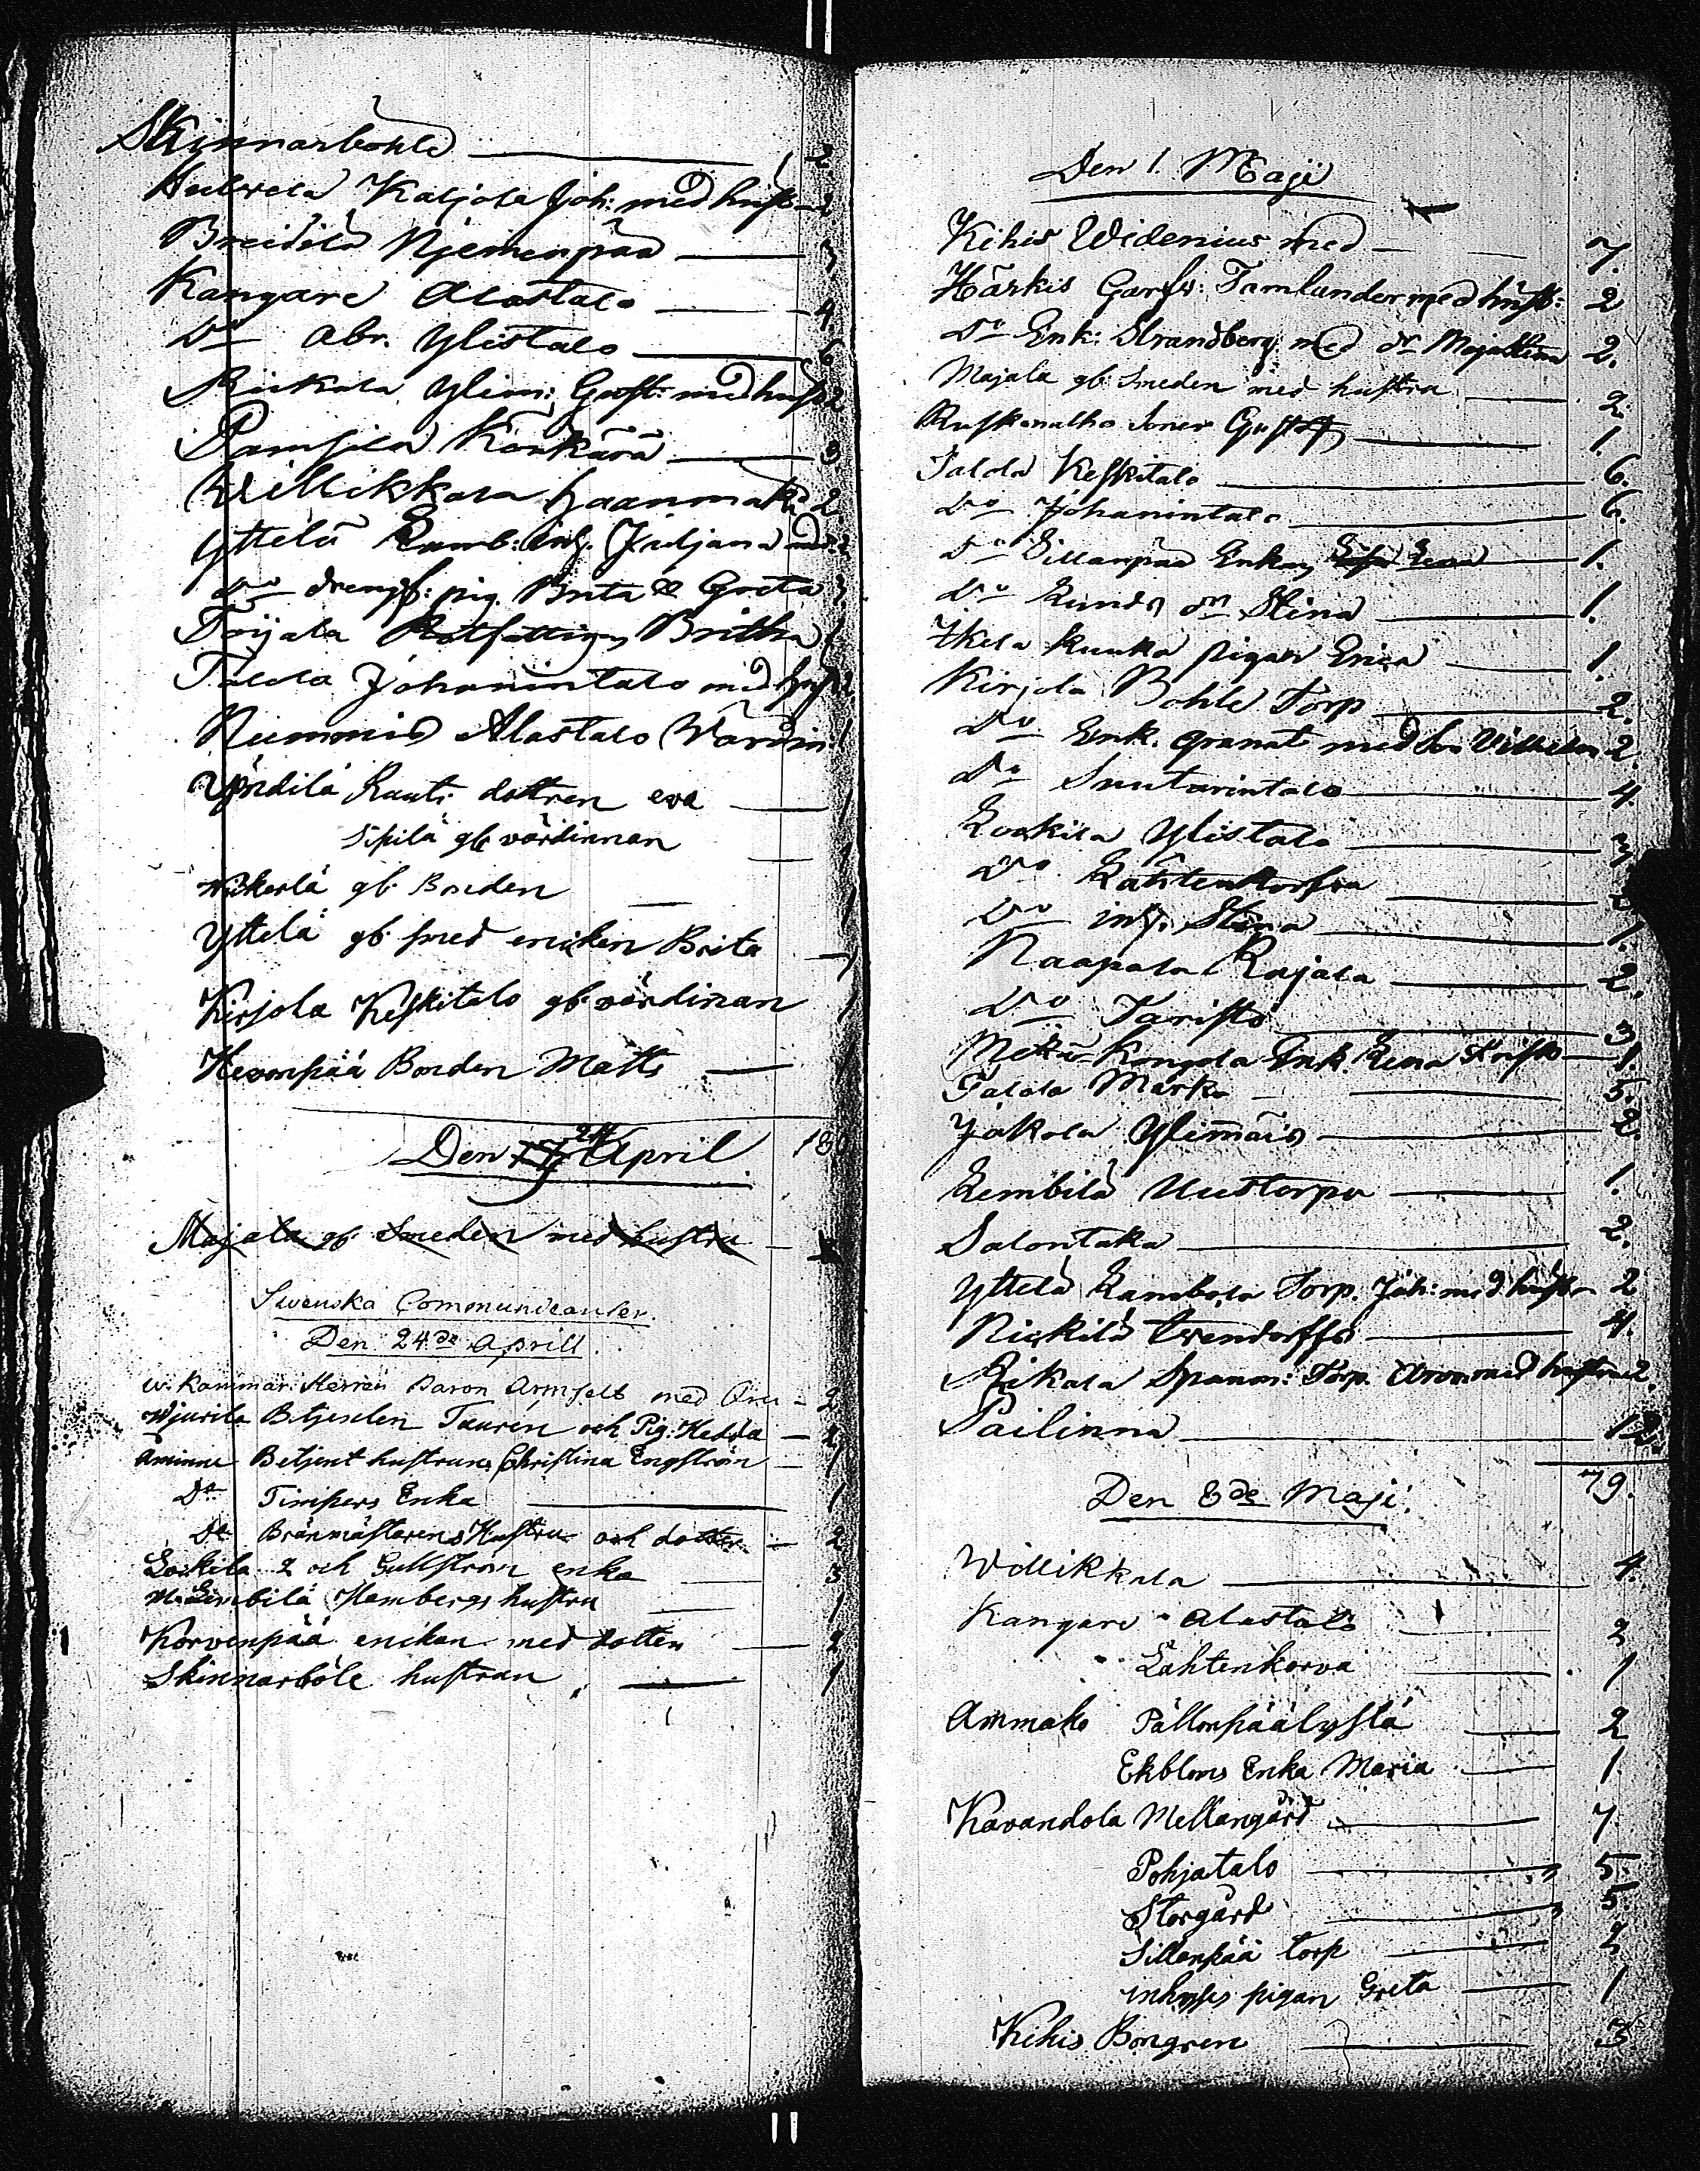 Skinnarböhle 2
Hulvela Kaljola Joh: med hust 2
Breidilä Njemenpää 3
Kangare Alastalo 4
Do Abr. Ylistalo 6
Rickala Ylim: Gust: med hust 2
Pamsila Känkärä 3
Willikkala Haanmäki 2
Yttelä Lamb: inh. Juljana med 2
Do drengf: pig. Brita & Greta 3
Toijala Rotfattigz Britha 1
Talola Johanintalo med hust 2
Nummis Alastalo Wärdin 1
Yöndilä Rauti dottren eva 1
Sipilä gb värdinnan 1
Wickerlä gb. Bonden 1
Yttelä gb. smed enckan Brita 1
Kirjola Keskitalo gb. värdinan 1
Hevonpää Bonden Matts 1
Den 24 April 180
Majala gb. Smeden med hustru
Swenska Communicanter.
Den 24de Aprill.
w. Kammar Herren Baron Armfelt med 2
Wjurila Betjenten Tauren och Pig: Hedda 2
Åminne Betjent hustrun Christina Engström 1
Do Timpers Enka 1
Do Bränmästarens Hustru och dotter 2
Lockila 2 och Gullström enka 3
Lembilä Hambergs hustru 1
Korvenpää enckan med dotter 2
Skinnarböle hustrun 1
Den 1. Maji
Kihis Widenius med 7.
Härkis Garfv: Tamlander med hust: 2
Do Enk: Strandberg med dr Majastina 2.
Majala gb. Smeden med hustru 2.
Ruskanalho Soner Gustaf 1.
Talola Keskitalo 6.
Do Johanintalo 6.
Do Sillanpää Enkan Lena 1.
Do Lunds dn Stina 1.
Ikela kuuka pigan Erica 1.
Kirjola Bohle Torp 2.
Do Enk. Granat med Son Wilhelm 2.
Do Suutarintalo 4.
Lockila Ylistalo 3
Do Lahtenkorfva
Do inh. Stina 1.
Naapala Rajala 2.
Do Taristo 3
Kongola Enk. Lena 1.
Talola Marko 5.
Jakola Ylimäis 2.
Lembilä Uustorpa 1.
Salontaka 2.
Yttelä Lambola Torp. Joh: med hustr 2
Nickilä 4.
Rikala Spanm: Torp. med hustru 2.
Pailinna 12.
79.
Den 8de Maji.
Willikkala 4.
Kangare Alastalo 2
Lahtenkorva 1
Ammako Pällonpäälystä 2
Ekbloms Enka Maria 1.
Kavandola Mellangård 7
Pohjatalo 5.
Storgård 5
Sillanpää torp 2
inhyses pigan Greta 1
Kihis Bongren 3